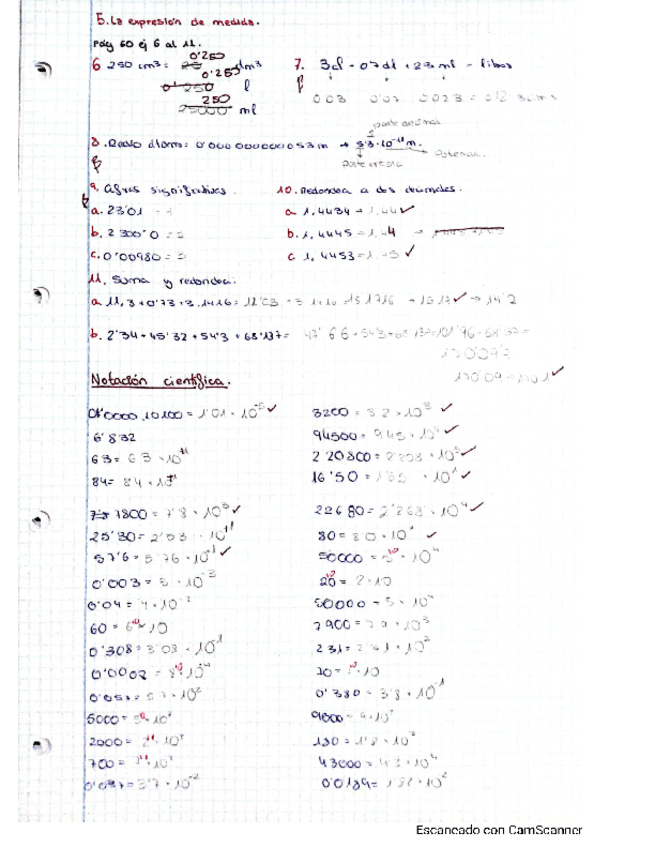 5. La expresión de medida.
pág 60 ej 6 al 11.
6 250 cm³ = 0'250 dm³
0'250 l
250 ml
7. 3cl - 07dl + 23 ml - litros
0 03 0'07 0'023 =
parte decimal
8. Radio átomo: 0'000 0000000053 m → 5'3 · 10 m.
parte entera
Potencia.
9. Cifras significativas.
a. 23'01 =
b. 2 300'0 = 5
c. 0'00980 = 3
10. Redondea a dos decimales.
a 1,4434 → 1,44 ✓
b. 1,4445 = 1,44 →
c 1,4453 = 1,45 ✓
11. Suma y redondea:
a 11,3 + 0'73 + 3,1416 = 12'03 + 3 1416 15 1716 → 15 17 ✓ → 14'2
b. 2'34 + 45'32 + 54'3 + 68'137 = 47'66 + 54'3 + 68 137 = 101'96 + 68'137 =
170097
170'09 → 1701 ✓
Notación científica.
0'0000 10100 = 1'01 · 10⁻⁵ ✓
6'832
63 = 6 3 · 10
84 = 8 4 · 10
7800 = 7'8 · 10³ ✓
25'30 = 2'53 · 10
57'6 = 5 76 · 10 ✓
0'003 = 3 · 10⁻³
0'04 = 4 · 10⁻²
60 = 6 · 10
0'308 = 3'08 · 10⁻¹
0'0002 =
0'057 = 5 7 · 10
5000 = 5 · 10³
2000 = 2 · 10³
700 = 7 · 10²
0'037 = 3'7 · 10⁻²
3200 = 3 2 · 10³ ✓
94500 = 9 45 · 10⁴ ✓
2 20800 = 2'208 · 10⁵ ✓
16'50 = 1'65 · 10¹ ✓
22680 = 2'268 · 10⁴ ✓
80 = 8'0 · 10¹ ✓
50000 = 5 · 10⁴
20 = 2 · 10
50000 = 5 · 10⁴
7900 = 7 9 · 10³
231 = 2'31 · 10²
10 = · 10
0'380 = 3'8 · 10⁻¹
9000 = 9 · 10³
130 = · 10²
43000 = 4 3 · 10⁴
Escaneado con CamScanner